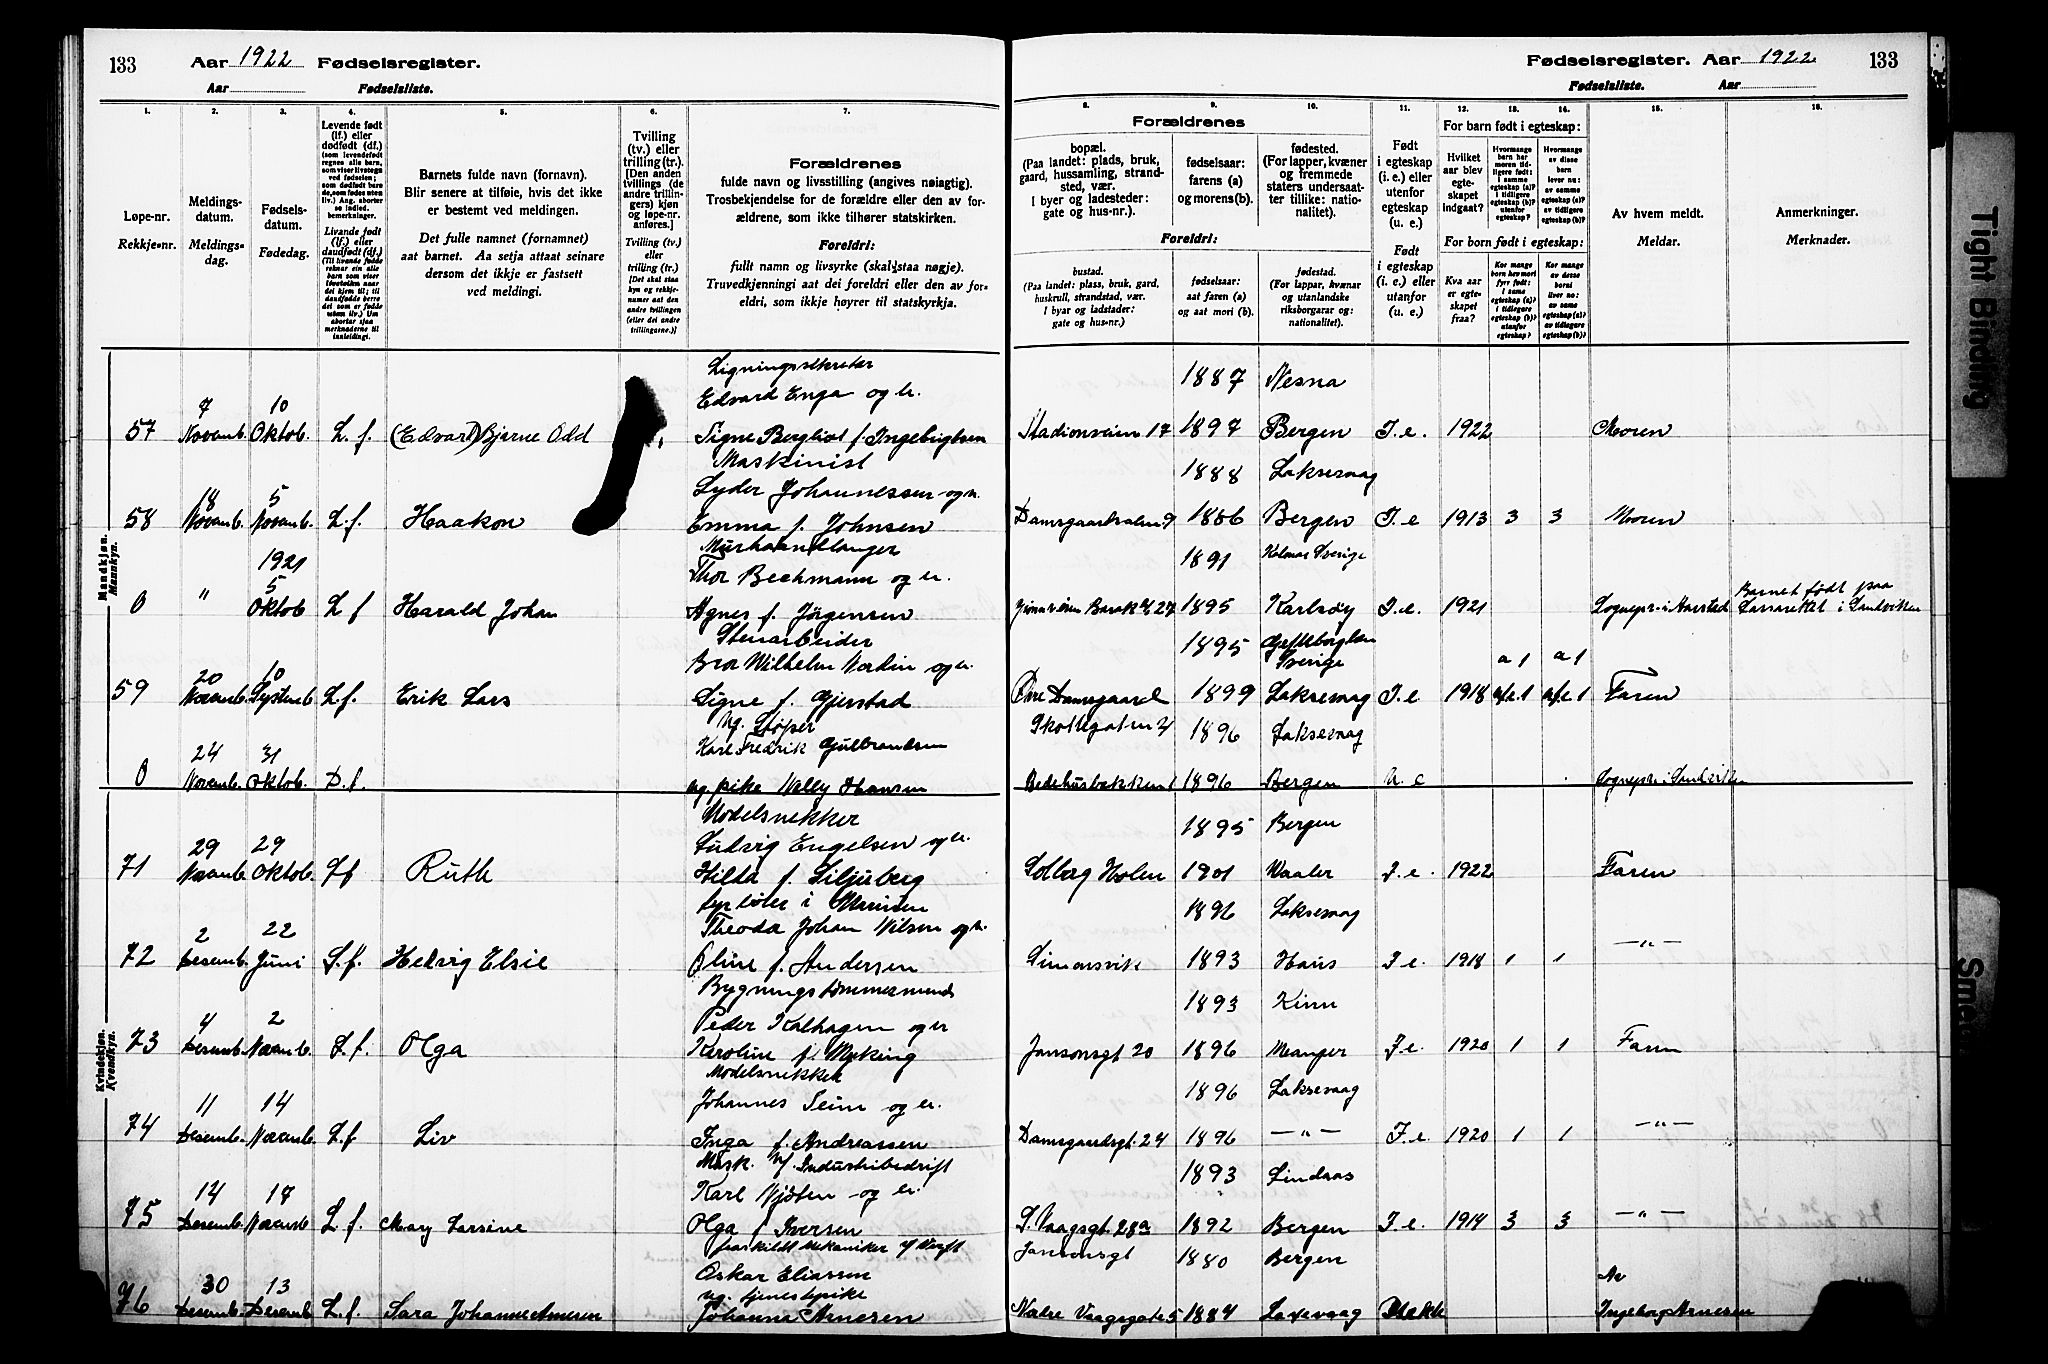 133 Aar 1922 Fødselsregister.
Aar Fødselsliste.
Fødselsregister. Aar 1922 133
Fødselsliste. Aar
1. 2. 3. 4. 5. 6. 7.
8. 9. 10. 11. 12. 13. 14. 15. 16.
Løpe-nr.
Rekkje-nr.
Meldings-
datum.
Meldings-
dag.
Fødsels-
datum.
Fødedag.
Levende født
(lf.) eller
dødfødt (df.)
Barnets fulde navn (fornavn).
Blir senere at tilføie, hvis det ikke
er bestemt ved meldingen.
Det fulle namnet (fornamnet)
aat barnet. Aa setja attaat seinare
dersom det ikkje er fastsett
ved meldingi.
Tvilling
(tv.) eller
trilling (tr.)
[Den anden
tvillings (de
andre trillin-
gers) kjøn
og løpe-nr.
anføres.]
Tvilling (tv.)
eller
trilling (tr.)
Forældrenes
fulde navn og livsstilling (angives nøiagtig).
Trosbekjendelse for de forældre eller den av for-
ældrene, som ikke tilhører statskirken.
Foreldri:
fullt namn og livsyrke (skal staa nøgje).
Truvedkjenningi aat dei foreldri eller den av for-
eldri, som ikkje høyrer til statskyrkja.
Forældrenes
bopæl.
(Paa landet: plads, bruk,
gaard, hussamling, strand-
sted, vær.
I byer og ladesteder:
gate og hus-nr.)
fødselsaar:
farens (a)
og morens (b).
fødested.
(For lapper, kvæner
og fremmede
staters undersaat-
ter tillike: natio-
nalitet).
Foreldri:
bustad.
(Paa landet: plass, bruk, gard,
huskrull, strandstad, vær.
I byar og ladstader:
gate og hus-nr.)
fødselsaar:
aat faren (a)
og aat mori (b).
fødestad.
(For lappar, kvænar
og utanlandske
riksborgarar og:
nationalitet).
Født
i egteskap
(i. e.) eller
utenfor
egteskap
(u. e.)
Født
i egteskap
(i. e.) eller
utanfor
(u. e.)
For barn født i egteskap:
Hvilket
aar blev
egte-
skapet
indgaat?
For born født i egteskap:
Kva aar
er egte-
skapet
fraa?
Av hvem meldt.
Meldar.
Anmerkninger.
Merknader.
Mandkjøn.
Mannkyn.
Ligningssekretær 1887 Nesna
7 10 Edvard Enga og h.
57 Novemb. Oktob. L. f. (Edvard) Bjarne Odd Signe Bergliot f. Ingebrigtsen Stadionveien 17 1897 Bergen I. e. 1922 Moren
Maskinist 1888 Laksevaag
18 5 Lyder Johannessen og h.
58 Novemb. Novemb. L. f. Haakon Emma f. Johnsen 1886 Bergen I. e 1913 3 3 Moren
Murhaandlanger 1891 Kalmar Sverige
1921 Thor Bechmann og h.
5
0 " Oktob L f Harald Johan Agnes f. Jörgensen 1895 Karlsöy I. e. 1921 Barnet født paa
Stenarbeider 1895 Sverige
20 10 Wilhelm Nordin og h. a 1 a 1
59 Novemb. L. f. Erik Lars Signe f. Gjerstad Øvre Damsgaard 1899 Laksevaag I. e 1918 Faren
Ug. Støper Skottegaten 1896 Laksevaag
24 31 Karl Fredrik Gulbrandsen
0 Novemb. Oktob. D. f. ug. pike Vally Hansen Bedehusbakken 1 1896 Bergen U. e
Kvindekjøn.
Kvendkyn.
Modelsnekker 1895 Bergen
29 29 Ludvig Engelsen og h.
71 Novemb. Oktob. L f Ruth Hilda f. Siljuberg Solberg Holen 1901 Vaaler I. e. 1922 Faren
Fyrbøter i Marinen 1896 Laksevaag
2 22 Theodor Johan Nilsen og h.
72 Desemb. Juni L. f. Hedvig Elsie Oline f. Andersen Simonsvik 1893 Haus I. e. 1918 1 1 — " —
Bygningstømmermand 1893 Kinn
4 2 Peder Kalhagen og h
73 Desemb. Novemb. L. f. Olga Karoline f. Myking Jansonsgt 20 1896 Manger I. e. 1920 1 1 Faren
Modelsnekker 1896 Laksevaag
11 14 Johannes Seim og h.
74 Desemb. Novemb. L. f Liv Inga f. Andreassen Damsgaardsgt. 24 1896 — " — I. e. 1920 1 1 — " —
Mask. v/ Industribedrift 1893 Lindaas
14 17 Karl og h.
75 Desemb. Novemb L. f. Mary Larsine Olga f Iversen 1892 Bergen I. e. 1914 3 3 — " —
fraskildt Mekaniker v/ Verft Jansonsgt 1880 Bergen
30 13 Oskar Eliassen Av
ug. tjenestepike
76 Desemb. Desemb L. f. Sara Johanne Arnesen Johanna Arnesen 1884 Laksevaag Ingeborg Arnesen
Tight Binding